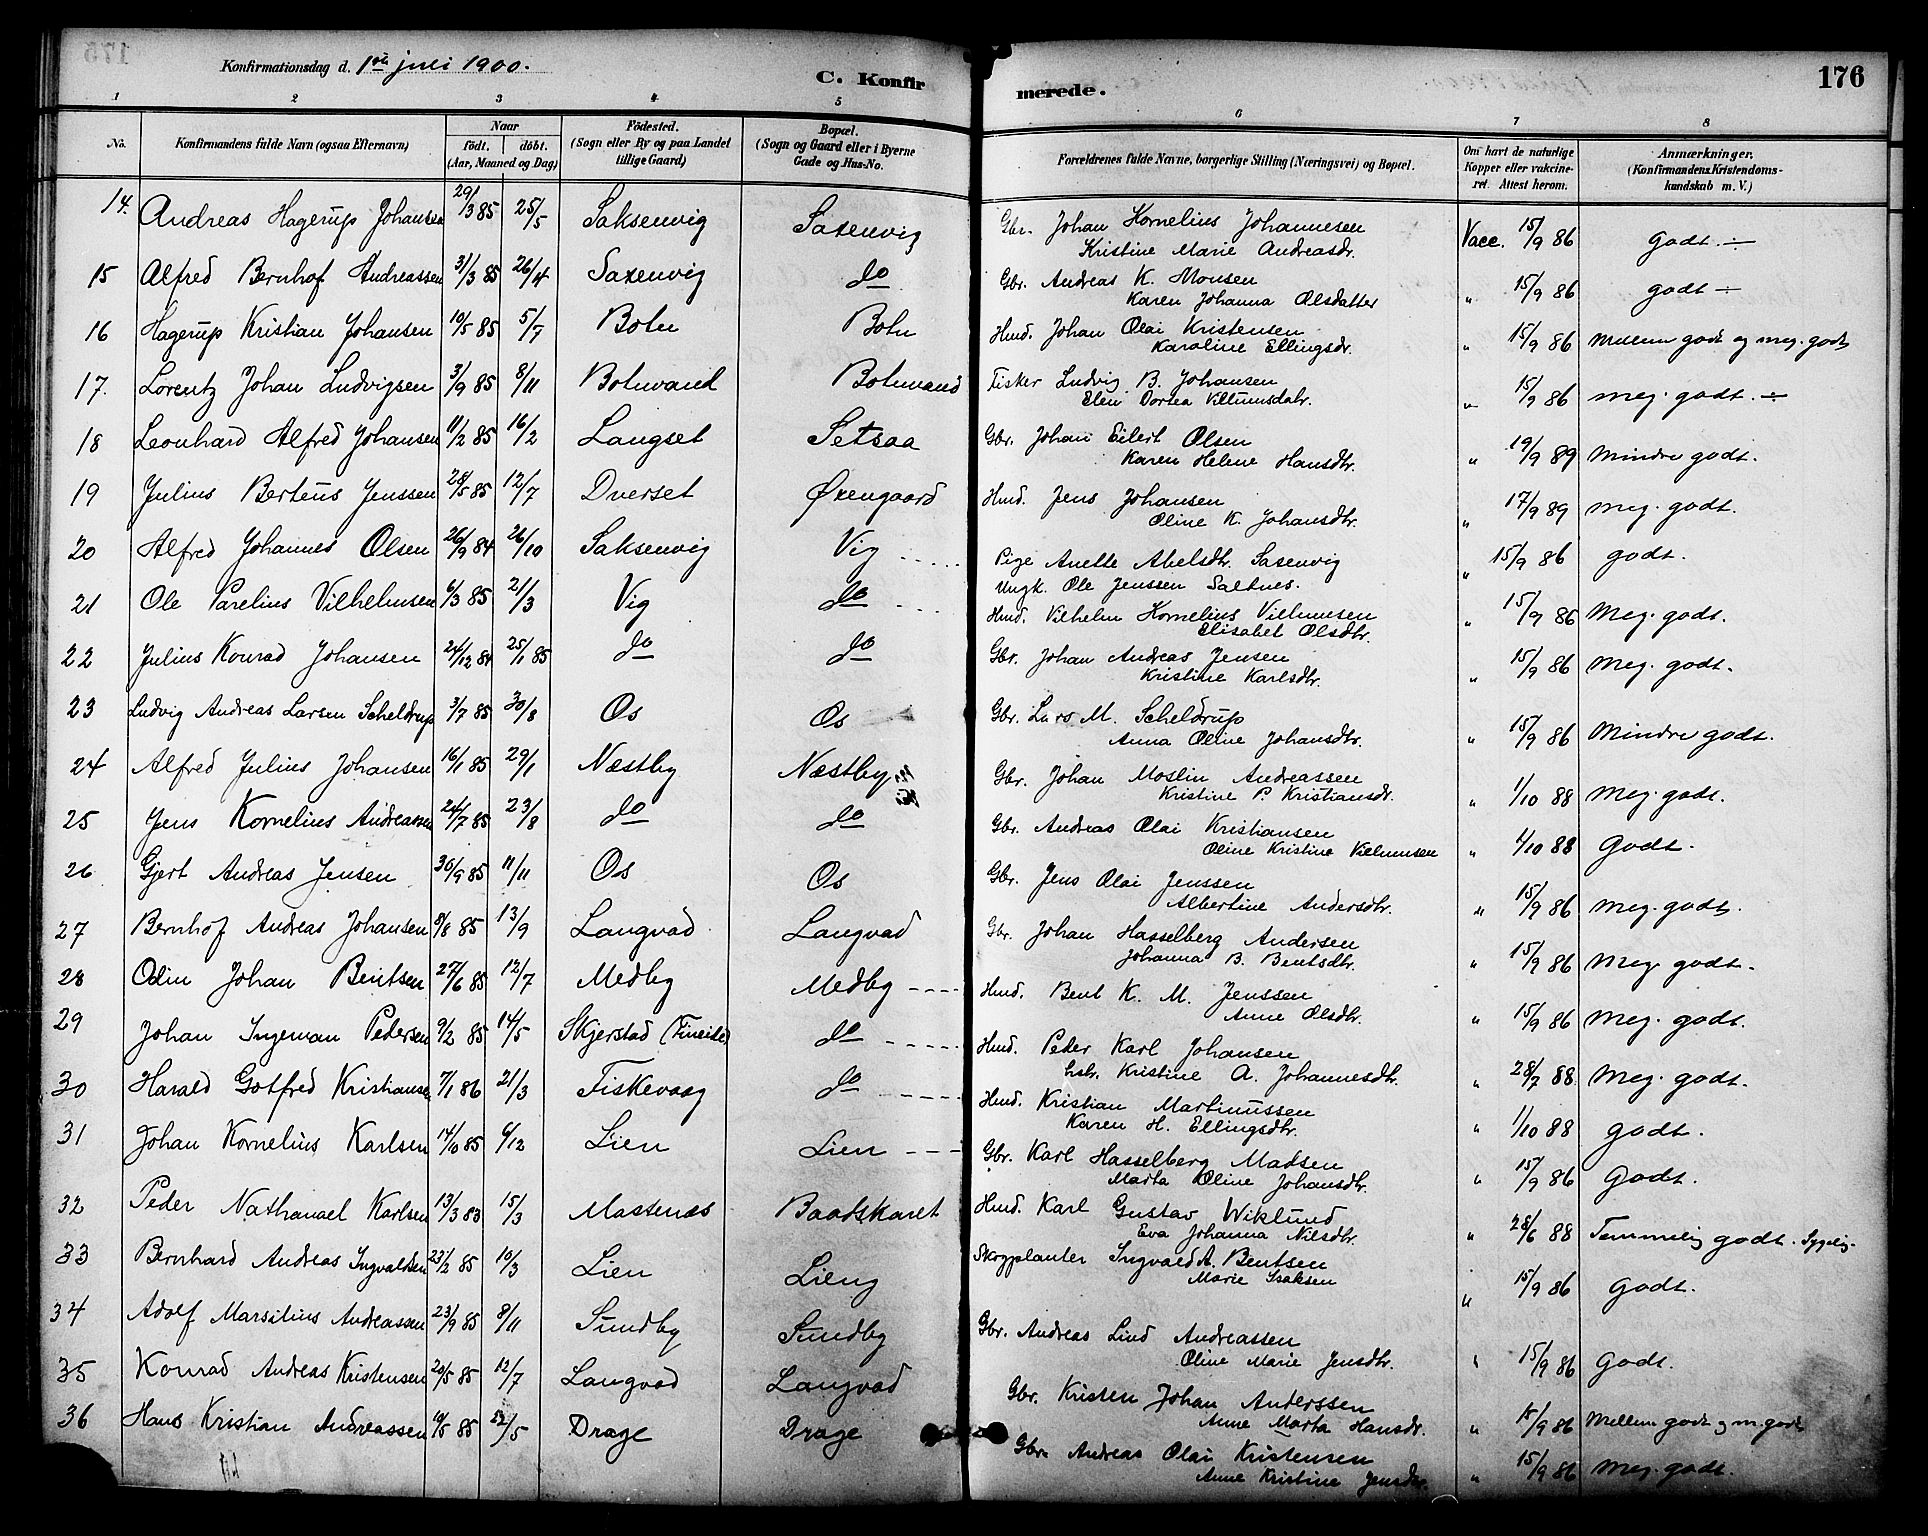 Konfirmationsdag d. 1ste juli 1900.
C. Konfirmerede.
176
1 2 3 4 5 6 7 8
No. Konfirmandens fulde Navn (ogsaa Efternavn) Naar født. døbt. (Aar, Maaned og Dag) Födested. (Sogn eller By og paa Landet tillige Gaard) Bopæl. (Sogn og Gaard eller i Byerne Gade og Hus-No. Forældrenes fulde Navne, borgerlige Stilling (Næringsvei) og Bopæl. Om havt de naturlige Kopper eller vakcineret. Attest herom. Anmærkninger. (Konfirmandens Kristendomskundskab m. V.)
14. Andreas Hagerup Johansen 29/3 85 25/5 Saksenvig Saxenvig Gbr. Johan Kornelius Johannesen Vacc. 15/9 86 Godt. ÷
Kristine Marie Andreasdr.
15 Alfred Bernhof Andreassen 31/3 85 26/4 Saxenvig do Gbr. Andreas K. Monsen " 15/9 86 godt ÷
Karen Johanna Olsdatter
16 Hagerup Kristian Johansen 10/5 85 5/7 Botn Botn Hmd. Johan Olai Kristensen " 15/9 86 Mellem godt og meg. godt
Karoline Ellingsdr.
17. Lorentz Johan Ludvigsen 3/9 85 8/11 Botnvand Botnvand Fisker Ludvig B. Johansen " 15/9 86 meg. godt. ÷
Elen Dortea Villumsdatr.
18 Leonhard Alfred Johansen 11/2 85 16/2 Langset Setsaa Gbr. Johan Eilert Olsen " 19/9 89 Mindre godt.
Karen Helene Hansdtr.
19 Julius Berteus Jenssen 28/5 85 12/7 Dverset Øxengaard Hmd. Jens Johansen " 17/9 89 Meg. godt.
Oline K. Johansdtr.
20 Alfred Johannes Olsen 26/9 84 26/10 Saksenvig Vig Pige Anette Abelsdtr. Saxenvig " 15/9 86 godt.
Ungk. Ole Jenssen Saltnes.
21 Ole Parelius Vilhelmsen 6/3 85 21/3 Vig do Hmd. Vilhelm Kornelius Villumsen " 15/9 86 Meg. godt.
Elisabet Olsdtr.
22 Julius Konrad Johansen 24/12 84 25/1 85 do do Gbr. Johan Andreas Jensen " 15/9 86 Meg. godt.
Kristine Karlsdtr.
23 Ludvig Andreas Larsen Scheldrup 3/7 85 30/8 Os Os Gbr. Lars M. Scheldrup " 15/9 86 Mindre godt.
Anna Oline Johansdtr.
24 Alfred Julius Johansen 16/1 85 29/1 Næstby Næstby Gbr. Johan Moslin Andreassen " 1/10 88 Meg. godt.
Kristine P. Kristiansdr.
25 Jens Kornelius Andreassen 24/7 85 23/8 do do Gbr. Andreas Olai Kristiansen " 1/10 88 Godt.
Oline Kristine Villumsen
26 Gjert Andreas Jensen 30/9 85 11/11 Os Os Gbr. Jens Olai Jenssen " 15/9 86 Meg. godt.
Albertine Andersdtr.
27 Bernhof Andreas Johansen 8/8 85 13/9 Langvad Langvad Gbr. Johan Hasselberg Andersen " 15/9 86 Meg. godt.
Johanna B. Bentsdtr.
28 Odin Johan Bentsen 27/6 85 12/7 Medby Medby Hmd. Bent K. M. Jenssen " 15/9 86 Meg. godt.
Anne Olsdtr.
29 Johan Ingeman Pedersen 9/2 85 14/5 Skjerstad (Fineide) do Hmd. Peder Karl Johansen " 28/7 88 Meg. godt.
hstr. Kristine A. Johannesdtr.
30 Harald Gotfred Kristiansen 7/1 86 21/3 Fiskevaag do Hmd. Kristian Martinussen " 1/10 88 godt.
Karen H. Ellingsdtr.
31 Johan Kornelius Karlsen 14/10 85 6/12 Lien Lien Gbr. Karl Hasselberg Madsen " 15/9 86 Godt.
Marta Oline Johansdtr.
32 Peder Nathanael Karlsen 13/3 83 15/3 Massenæs Baadskaret Hmd. Karl Gustav Wiklund " 28/6 88 Temmelig godt. Sygelig.
Eva Johanna Nilsdtr.
33 Bernhard Andreas Ingvaldsen 23/2 85 10/3 Lien Lieng Skogplanter Ingvald A. Bentsen " 15/9 86 Godt.
Marie Isaksen
34 Adolf Marsilius Andreassen 23/9 85 8/11 Sundby Sundby Gbr. Andreas Lind Andreassen " 15/9 86 Godt.
Oline Marie Jensdtr.
35 Konrad Andreas Kristensen 20/5 85 12/7 Langvad Langvad Gbr. Kristen Johan Anderssen " 15/9 86 Mellem godt og m. godt
Anne Marta Hansdr.
36 Hans Kristian Andreassen 10/5 85 22/5 Drage Drage Gbr. Andreas Olai Kristensen " 15/9 86 Meg. godt.
Anne Kristine Jensdtr.